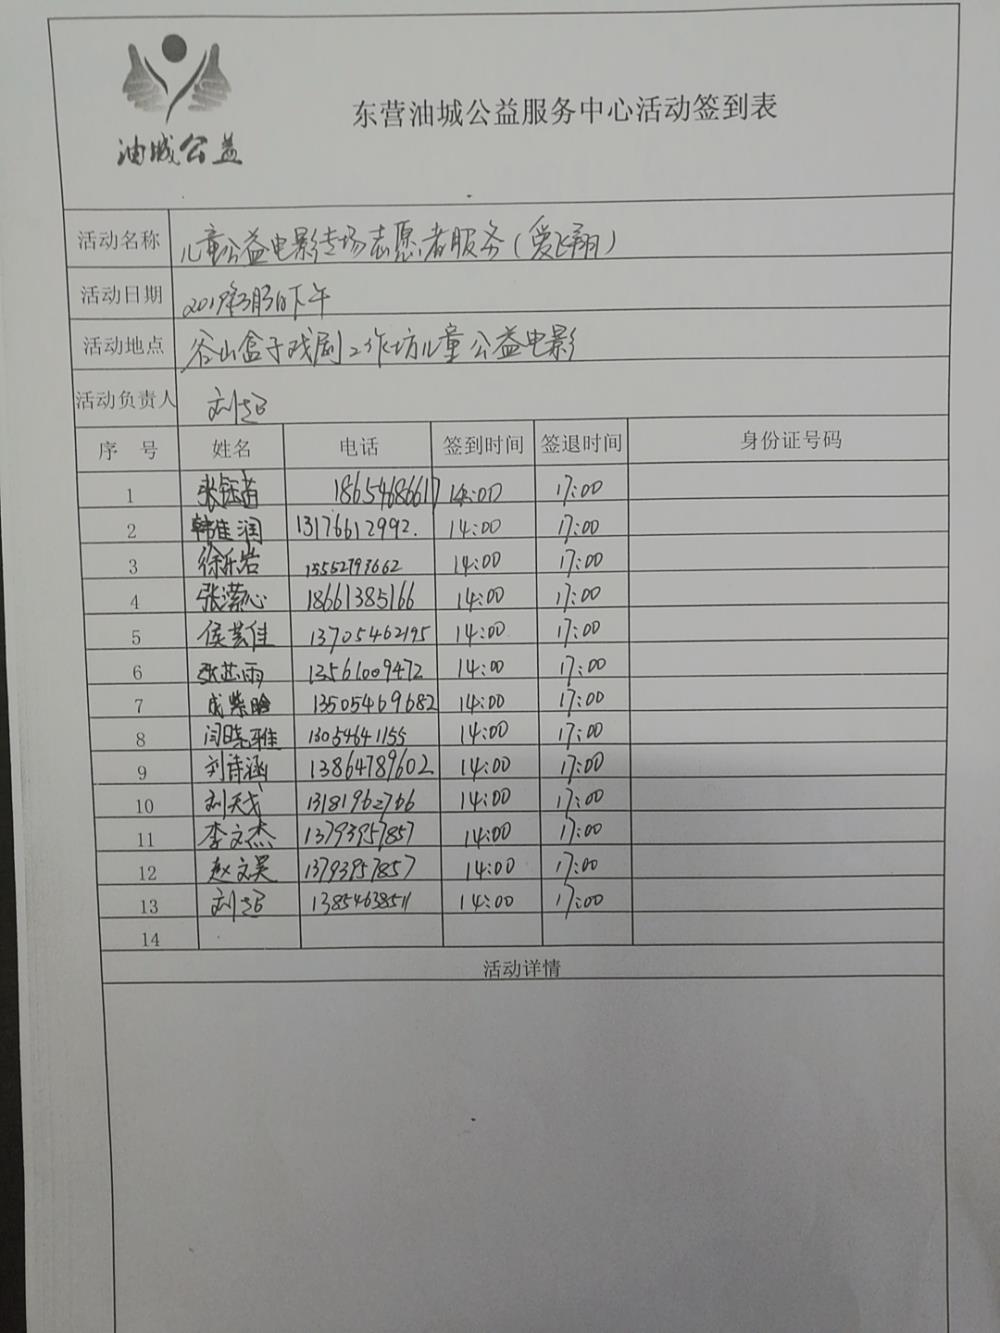 油城公益
东营油城公益服务中心活动签到表
活动名称 儿童公益电影专场志愿者服务(爱飞翔)
活动日期 2019年3月3日下午
活动地点 谷山盒子戏剧工作坊儿童公益电影
活动负责人 刘超
序 号 姓名 电话 签到时间 签退时间 身份证号码
1 张钰苗 18654686617 14:00 17:00
2 韩佳润 13176612992. 14:00 17:00
3 徐乐岩 15552793662 14:00 17:00
4 张潆心 18661385166 14:00 17:00
5 侯芸佳 13705462195 14:00 17:00
6 张芷雨 13561009472 14:00 17:00
7 成紫晗 13505469682 14:00 17:00
8 闫晓雅 13054641155 14:00 17:00
9 刘诗涵 13864789602 14:00 17:00
10 刘天戈 13181962766 14:00 17:00
11 李文杰 13793957857 14:00 17:00
12 赵文昊 13793957857 14:00 17:00
13 刘超 13854638511 14:00 17:00
14
活动详情